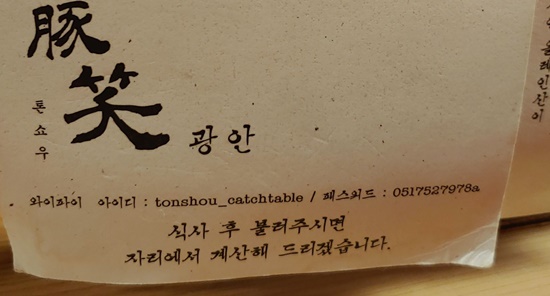 豚
笑
톤쇼우
광안
와이파이 아이디 : tonshou_catchtable / 패스워드 : 0517527978a
식사 후 불러주시면
자리에서 계산해 드리겠습니다.